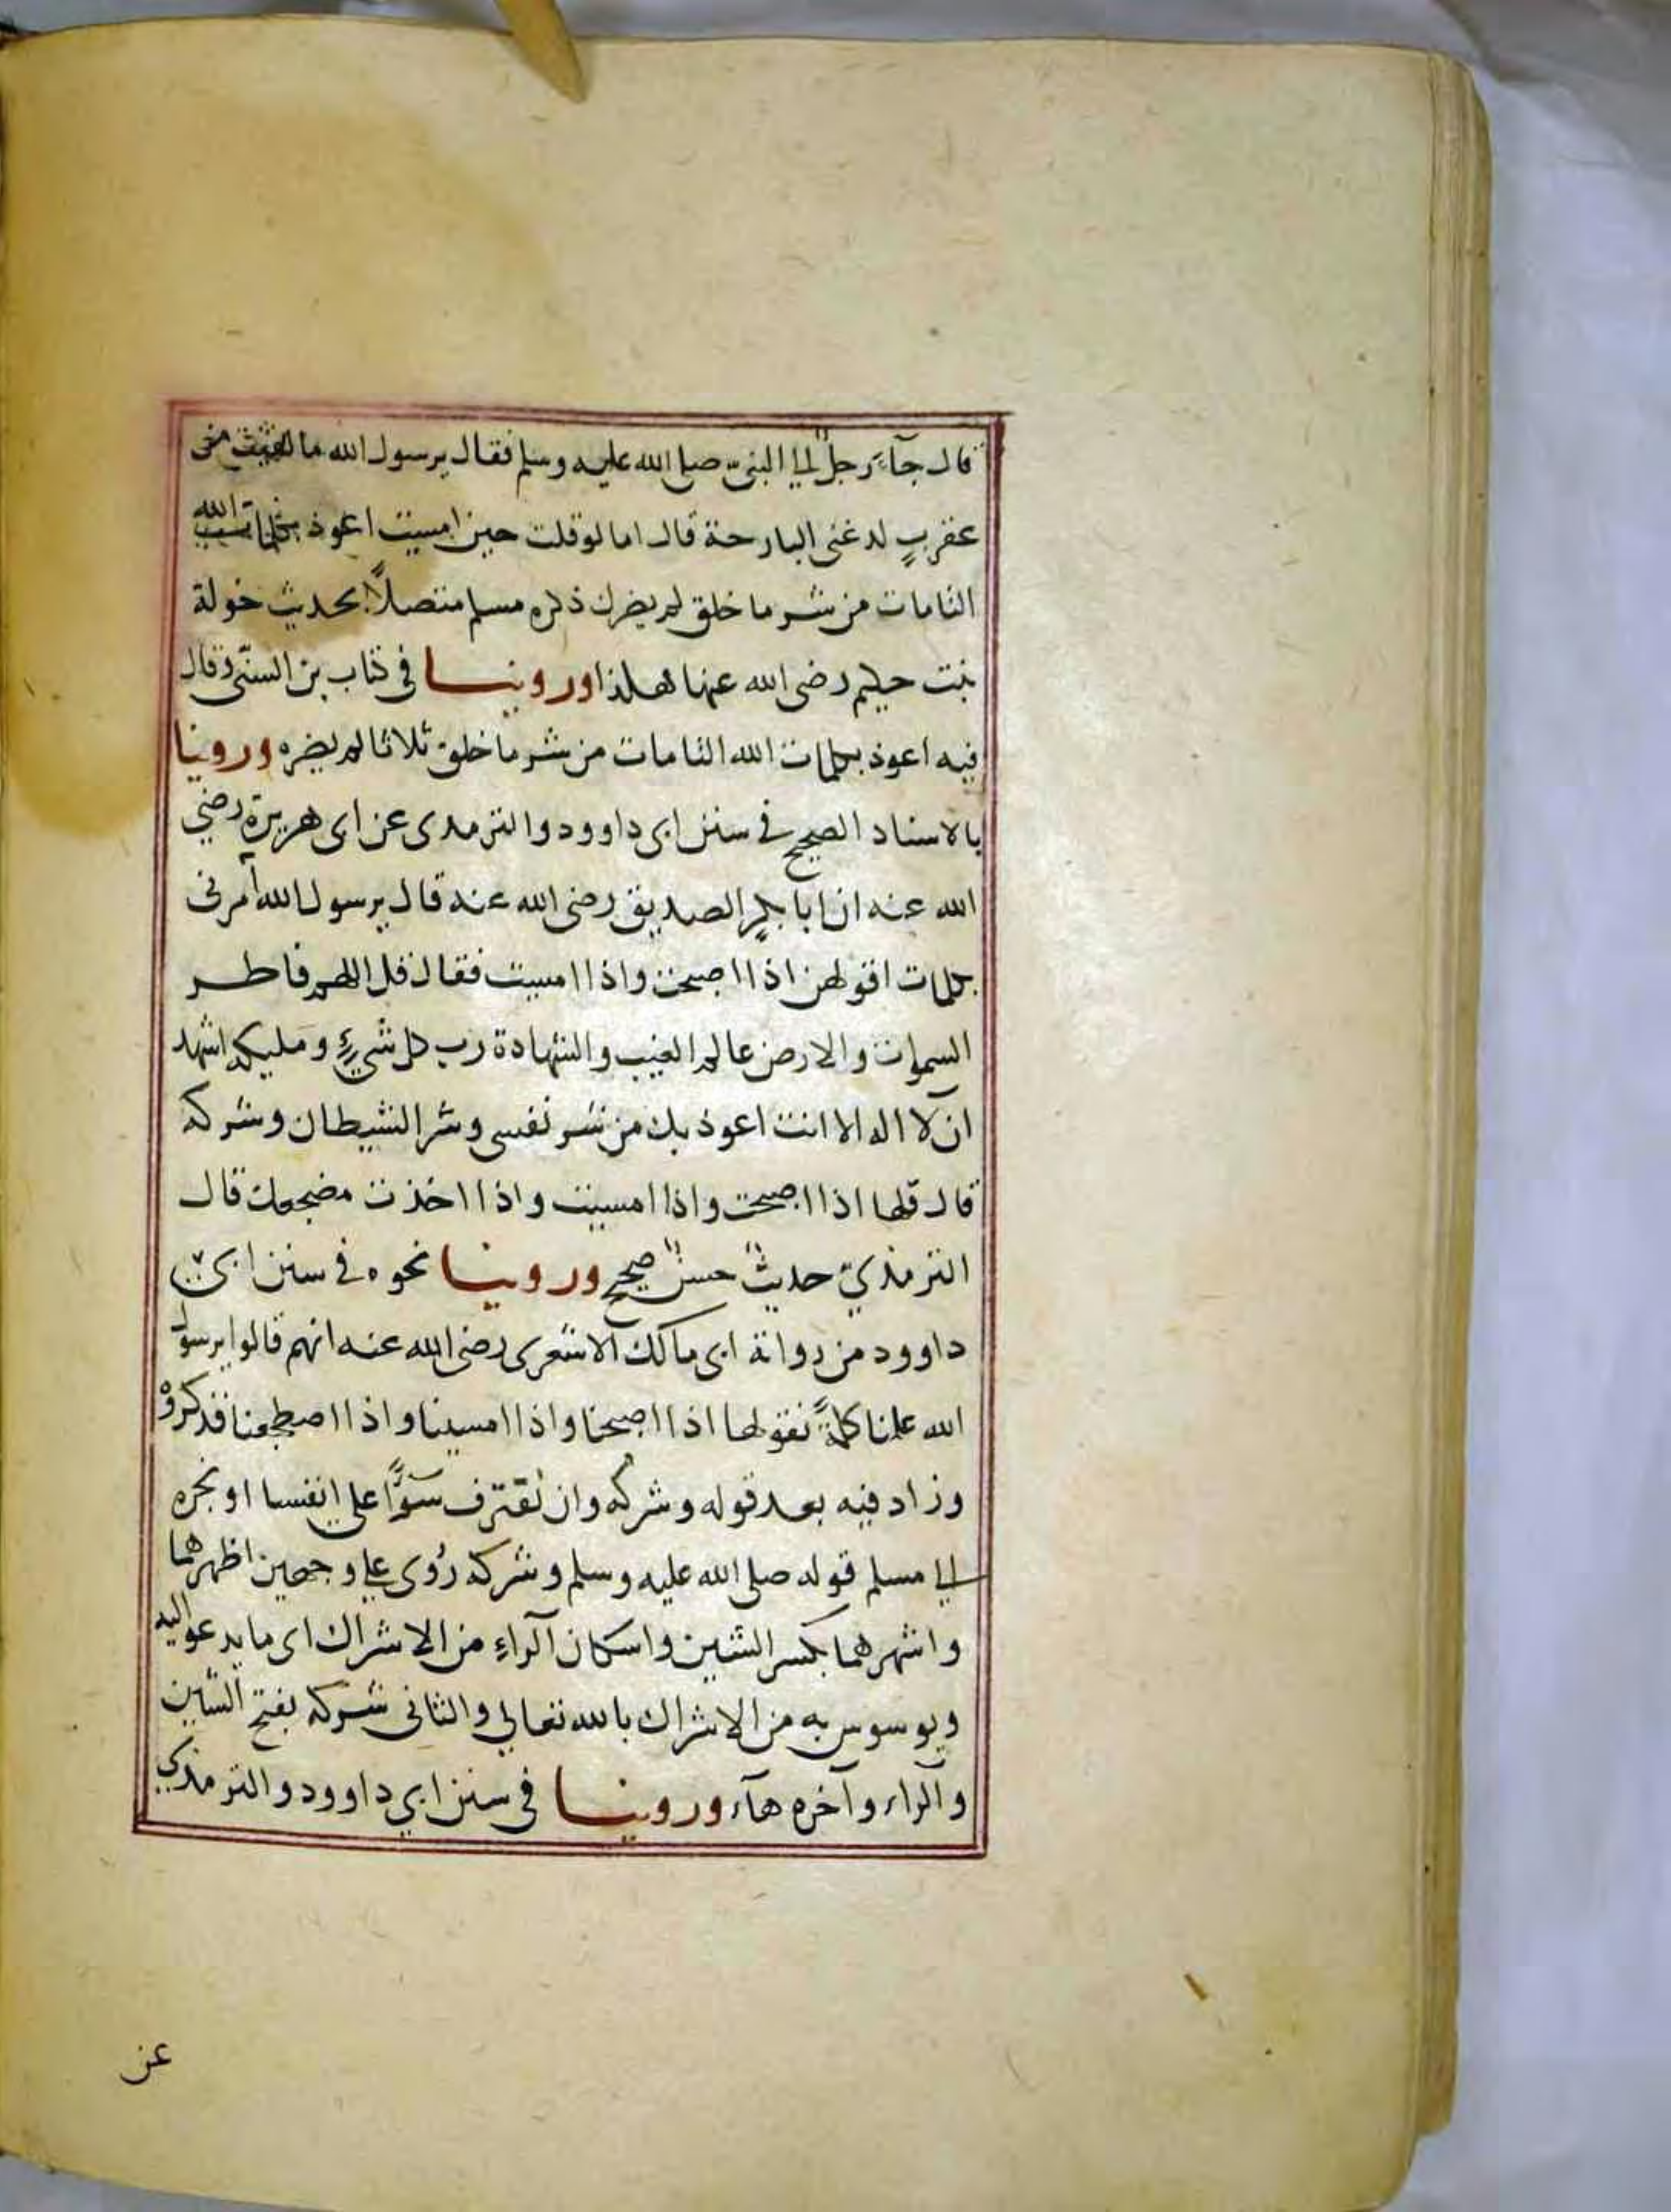 قال جآء رجل الي النبي صلي الله عليه وسلم فقال يرسول الله ما لقيت من
عقرب لدغني البارحة قال اما لو قلت حين امسيت اعوذ بكلمات الله
التامات من شر ما خلق لم يضرك ذكره مسلم متصلاً بحديث خولة
بنت حكيم رضي الله عنها هكذا وروينا في كتاب بن السني وقال
فيه اعوذ بكلمات الله التامات من شر ما خلق ثلاثا لم يضره وروينا
بالاسناد الصحيح في سنن ابي داوود والترمدي عن ابي هريرة رضي
الله عنه ان ابا بكرٍ الصديق رضي الله عنه قال يرسول الله آمرني
بكلمات اقولهن اذا اصبحت واذا امسيت فقال قل اللهم فاطر
السموات والارض عالم الغيب والشهادة رب كل شيءٍ ومليكه اشهد
ان لآ اله الا انت اعوذ بك من شر نفسي وشر الشيطان وشركه
قال قلها اذا اصبحت واذا امسيت واذا اخذت مضجعك قال
الترمذي حديث حسن صحيح وروينا نحوه في سنن ابي
داوود من رواية ابي مالك الاشعري رضي الله عنه انهم قالوا يرسول
الله علمنا كلمةً نقولها اذا اصبحنا واذا امسينا واذا اضطجعنا فذكروْ
وزاد فيه بعد قوله وشركه وان نقترف سوءًا علي انفسنا او نجره
الي مسلم قوله صلي الله عليه وسلم وشركه رُوي علي وجهين اظهرهما
واشهرهما بكسر الشين واسكان الرآء من الاشراك اي ما يدعو اليه
ويوسوس به من الاشراك بالله تعالي والثاني شركه بفتح الشين
والرآء وآخره هآء وروينا في سنن ابي داوود والترمذي
عن